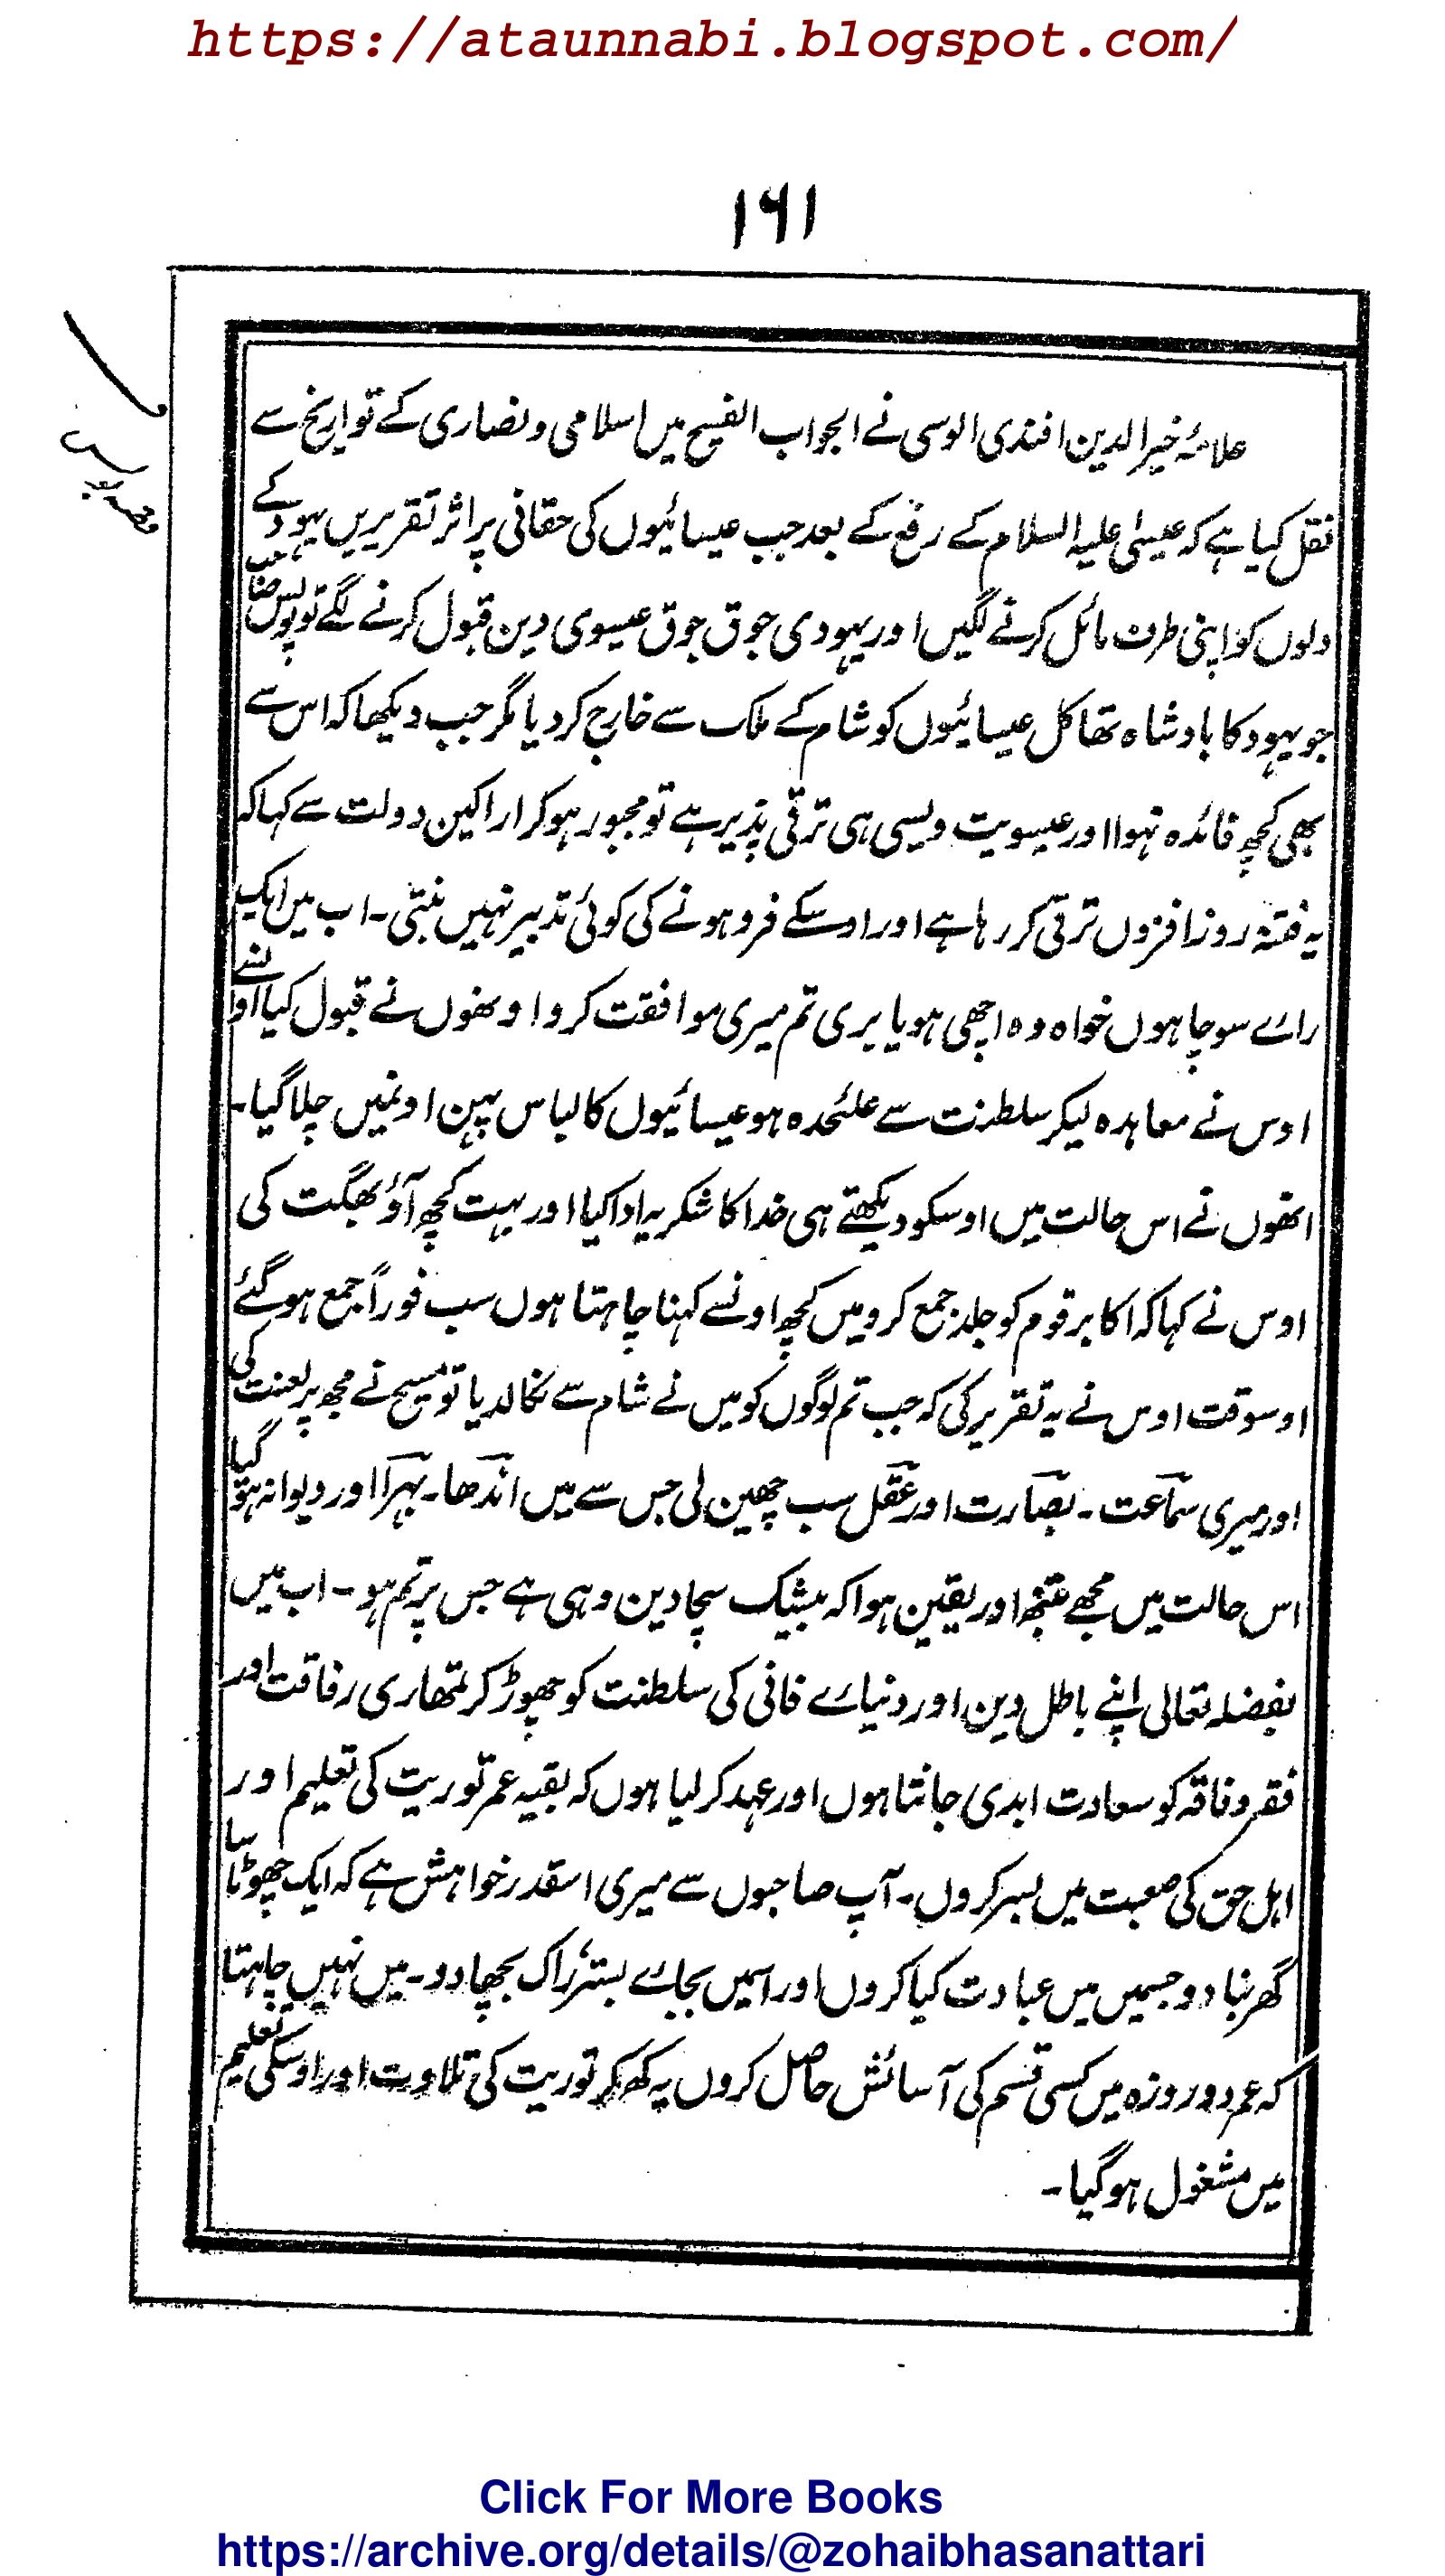 https://ataunnabi.blogspot.com/
۱۶۱
علامۂ خیرالدین افندی الوسی نے الجواب الفسیح میں اسلامی و نصاری کے تواریخ سے
نقل کیا ہے کہ عیسیٰ علیہ السلام کے رفع کے بعد جب عیسائیوں کی حقانی پر اثر تقریریں یہود کے
دلوں کو اپنی طرف مائل کرنے لگیں اور یہودی جوق جوق عیسوی دین قبول کرنے لگے تو پولس صاحب
جو یہود کا بادشاہ تھا کل عیسائیوں کو شام کے ملک سے خارج کر دیا مگر جب دیکھا کہ اس سے
بھی کچھ فائدہ نہوا اور عیسویت ویسی ہی ترقی پذیر ہے تو مجبور ہو کر اراکین دولت سے کہا کہ
یہ فتنہ روز افزوں ترقی کر رہا ہے اور اوسکے فرو ہونے کی کوئی تدبیر نہیں بنتی۔ اب میں ایک
راے سوچا ہوں خواہ وہ اچھی ہو یا بری تم میری موافقت کرو اونھوں نے قبول کیا
اوس نے معاہدہ لیکر سلطنت سے علٰحدہ ہو عیسائیوں کا لباس پہن اونمیں چلا گیا۔
انھوں نے اس حالت میں اوسکو دیکھتے ہی خدا کا شکریہ ادا کیا اور بہت کچھ آؤ بھگت کی
اوس نے کہا کہ اکابر قوم کو جلد جمع کرو میں کچھ اونسے کہنا چاہتا ہوں سب فوراً جمع ہو گئے
اوسوقت اوس نے یہ تقریر کی کہ جب تم لوگوں کو میں نے شام سے نکالدیا تو مسیح نے مجھ پر لعنت کی
اور میری سماعت ۔ بصارت اور عقل سب چھین لی جس سے میں اندھا۔ بہرا اور دیوانہ ہو گیا
اس حالت میں مجھے تنبہ اور یقین ہوا کہ بیشک سچا دین وہی ہے جس پر تم ہو ۔ اب میں
بفضلہ تعالی اپنے باطل دین اور دنیاے فانی کی سلطنت کو چھوڑ کر تمھاری رفاقت اور
فقر و فاقہ کو سعادت ابدی جانتا ہوں اور عہد کر لیا ہوں کہ بقیہ عمر توریت کی تعلیم اور
اہل حق کی صحبت میں بسر کروں۔ آپ صاحبوں سے میری اسقدر خواہش ہے کہ ایک چھوٹا سا
گھر بنا دو جسمیں میں عبادت کیا کروں اور اسمیں بجاے بستر راک بچھا دو۔ میں نہیں چاہتا
کہ عمر دو روزہ میں کسی قسم کی آسائش حاصل کروں یہ کھکر توریت کی تلاوت اور اوسکی تعلیم
میں مشغول ہو گیا ۔
Click For More Books
https://archive.org/details/@zohaibhasanattari